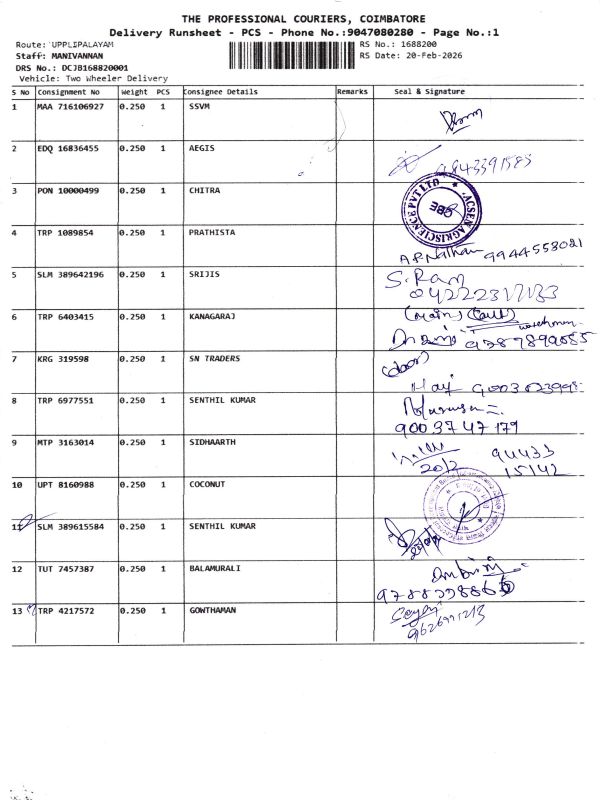 THE PROFESSIONAL COURIERS, COIMBATORE
Delivery Runsheet - PCS - Phone No.:9047080280 - Page No.:1
Route: UPPLIPALAYAM RS No.: 1688200
Staff: MANIVANNAN RS Date: 20-Feb-2026
DRS No.: DCJB168820001
Vehicle: Two Wheeler Delivery
S No Consignment No Weight PCS Consignee Details Remarks Seal & Signature
1 MAA 716106927 0.250 1 SSVM
2 EDQ 16836455 0.250 1 AEGIS 9843391585
3 PON 10000499 0.250 1 CHITRA ACSEN AGRISCIENCE PVT LTD
4 TRP 1089854 0.250 1 PRATHISTA 9944553021
5 SLM 389642196 0.250 1 SRIJIS S. Ram
6 TRP 6403415 0.250 1 KANAGARAJ
7 KRG 319598 0.250 1 SN TRADERS
8 TRP 6977551 0.250 1 SENTHIL KUMAR
9003747179
9 MTP 3163014 0.250 1 SIDHAARTH 94433
20/2 15142
10 UPT 8160988 0.250 1 COCONUT
11 SLM 389615584 0.250 1 SENTHIL KUMAR
12 TUT 7457387 0.250 1 BALAMURALI
13 TRP 4217572 0.250 1 GOWTHAMAN